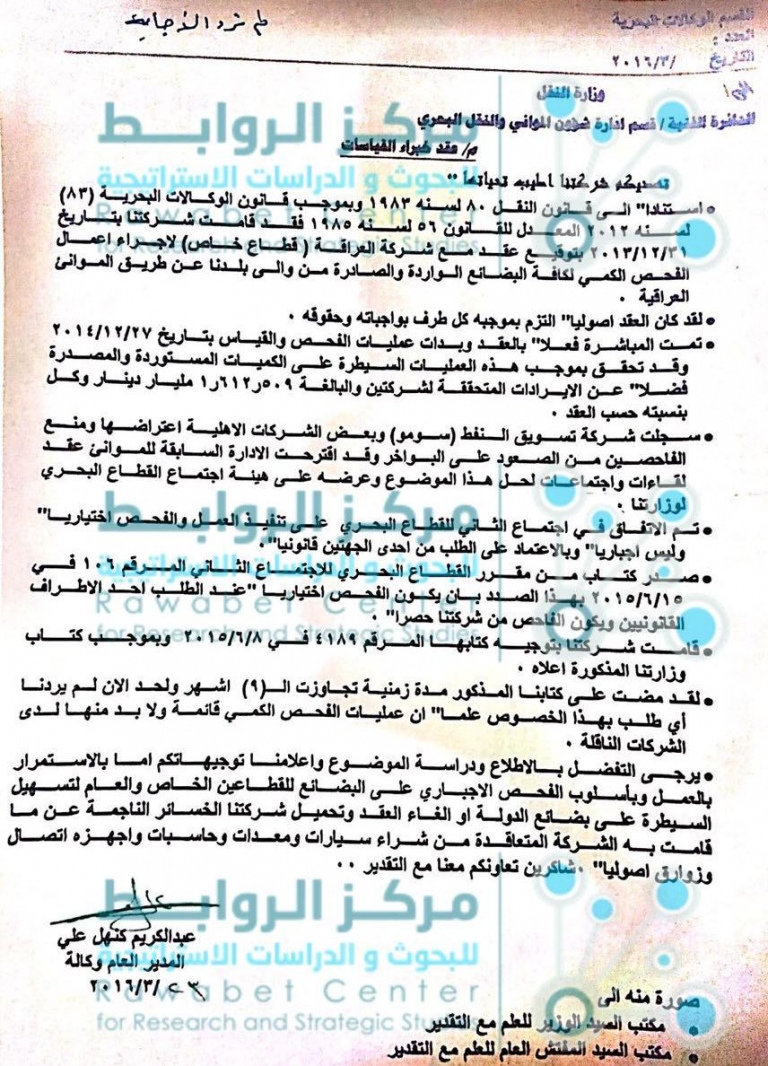 لم ترد الأجابة
القسم الوكالات البحرية
العدد :
التاريخ / ٢٠١٦/٣
الى / وزارة النقل
الدائرة الفنية / قسم ادارة شؤون الموانئ والنقل البحري
م/ عقد خبراء القياسات
تهديكم شركتنا اطيب تحياتها"
• استنادا" الى قانون النقل ٨٠ لسنه ١٩٨٣ وبموجب قانون الوكالات البحرية (٨٣)
لسنه ٢٠١٢ المعدل للقانون ٥٦ لسنه ١٩٨٥ فقد قامت شركتنا بتاريخ
٢٠١٣/١٢/٣١ بتوقيع عقد مع شركة العراقة ( قطاع خاص) لاجراء اعمال
الفحص الكمي لكافة البضائع الواردة والصادرة من والى بلدنا عن طريق الموانئ
العراقية .
• لقد كان العقد اصوليا" التزم بموجبه كل طرف بواجباته وحقوقه .
• تمت المباشرة فعلا" بالعقد وبدات عمليات الفحص والقياس بتاريخ ٢٠١٤/١٢/٢٧
وقد تحقق بموجب هذه العمليات السيطرة على الكميات المستوردة والمصدرة
فضلا" عن الايرادات المتحققة لشركتين والبالغة ٥٠٩ر٦١٢ر١ مليار دينار وكل
بنسبته حسب العقد .
• سجلت شركة تسويق النفط (سومو) وبعض الشركات الاهلية اعتراضها ومنع
الفاحصين من الصعود على البواخر وقد اقترحت الادارة السابقة للموانئ عقد
لقاءات واجتماعات لحل هذا الموضوع وعرضه على هيئة اجتماع القطاع البحري
لوزارتنا .
• تم الاتفاق في اجتماع الثاني للقطاع البحري على تنفيذ العمل والفحص اختياريا"
وليس اجباريا" وبالاعتماد على الطلب من احدى الجهتين قانونيا" .
• صدر كتاب من مقرر القطاع البحري للاجتماع الثاني المرقم ١٠٦ في
٢٠١٥/٦/١٥ بهذا الصدد بان يكون الفحص اختياريا "عند الطلب احد الاطراف
القانونيين ويكون الفاحص من شركتنا حصرا" .
• قامت شركتنا بتوجيه كتابها المرقم ٤١٨٩ في ٢٠١٥/٦/٨ وبموجب كتاب
وزارتنا المذكورة اعلاه .
• لقد مضت على كتابنا المذكور مدة زمنية تجاوزت الـ(٩) اشهر ولحد الان لم يردنا
أي طلب بهذا الخصوص علما" ان عمليات الفحص الكمي قائمة ولا بد منها لدى
الشركات الناقلة .
• يرجى التفضل بالاطلاع ودراسة الموضوع واعلامنا توجيهاتكم اما بالاستمرار
بالعمل وبأسلوب الفحص الاجباري على البضائع للقطاعين الخاص والعام لتسهيل
السيطرة على بضائع الدولة او الغاء العقد وتحميل شركتنا الخسائر الناجمة عن ما
قامت به الشركة المتعاقدة من شراء سيارات ومعدات وحاسبات واجهزه اتصال
وزوارق اصوليا" .شاكرين تعاونكم معنا مع التقدير ..
عبدالكريم كنهل علي
المدير العام وكالة
٢٣ /٢٠١٦/٣
صورة منه الى
• مكتب السيد الوزير للعلم مع التقدير
• مكتب السيد المفتش العام للعلم مع التقدير
مركز الروابط
للبحوث و الدراسات الاستراتيجية
Rawabet Center
for Research and Strategic Studies
مركز الروابط
للبحوث و الدراسات الاستراتيجية
Rawabet Center
for Research and Strategic Studies
مركز الروابط
للبحوث و الدراسات الاستراتيجية
Rawabet Center
for Research and Strategic Studies